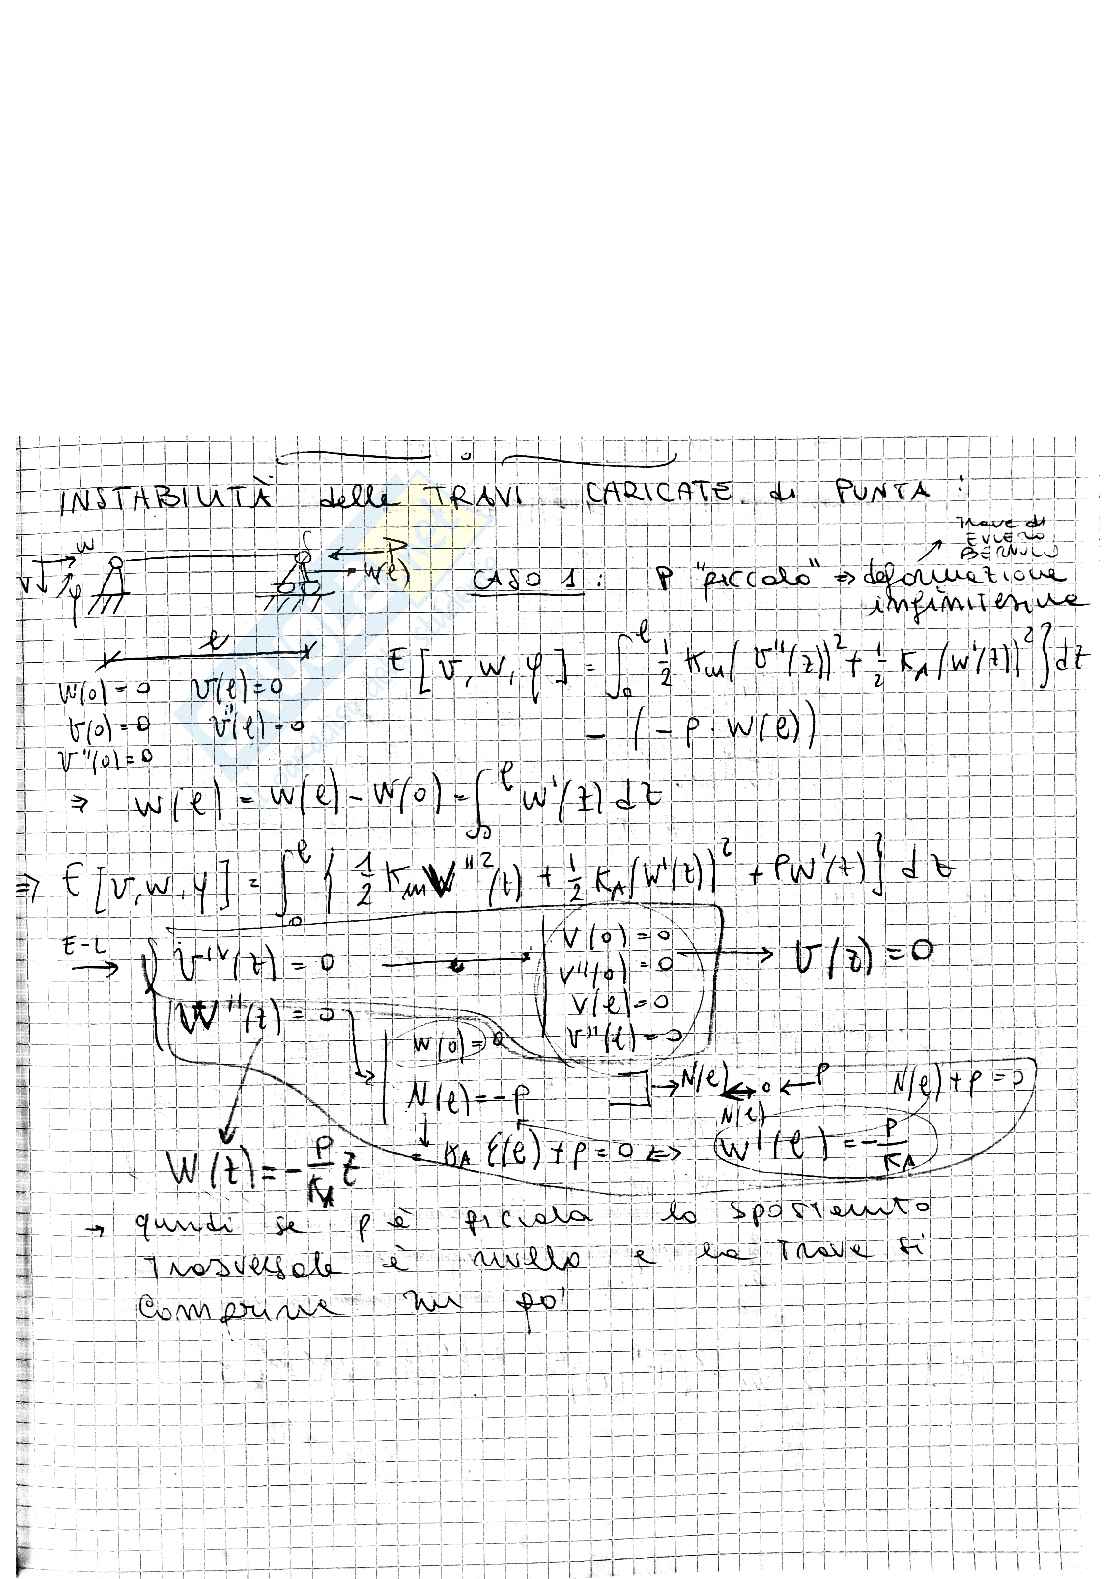 INSTABILITÀ delle TRAVI CARICATE di PUNTA :
Trave di
EULERO
BERNULO
w
v
φ
P
w(l)
CASO 1 : P "piccolo" ⇒ deformazione
infinitesime
l
E[v, w, φ] = ∫₀ˡ ½ Km(v''(z))² + ½ KA(w'(z))² } dz
w(0) = 0 v(l) = 0
v(0) = 0 v''(l) = 0
− (− P · w(l))
v''(0) = 0
⇒ w(l) = w(l) − w(0) = ∫₀ˡ w'(z) dz
⇒ E[v, w, φ] = ∫₀ˡ { ½ Km w''²(z) + ½ KA(w'(z))² + Pw'(z) } dz
E-L → { v^IV(z) = 0 v(0) = 0 → v(z) = 0
v''(0) = 0
v(l) = 0
w''(z) = 0 v''(l) = 0
w(0) = 0
N(l) = − P → N(l) ← P N(l) + P = 0
N(l)
= KA ε(l) + P = 0 ⇔ w'(l) = − P/KA
w(z) = − P/KA z
→ quindi se P è piccola lo spostamento
trasversale è nullo e la trave si
comprime un po'